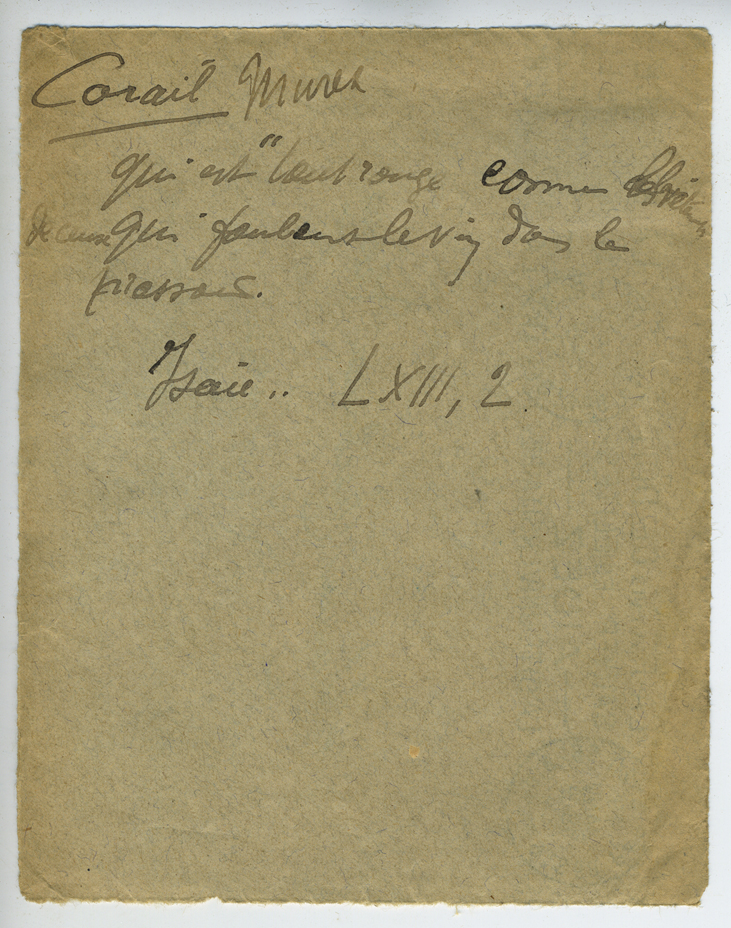 Corail Murex
qui est "tout rouge comme
de ceux qui foulent le vin dans le
pressoir.
Isaïe .. LXIII, 2